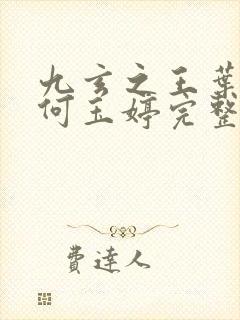 九玄之王葉
何玉婷完整
費達人